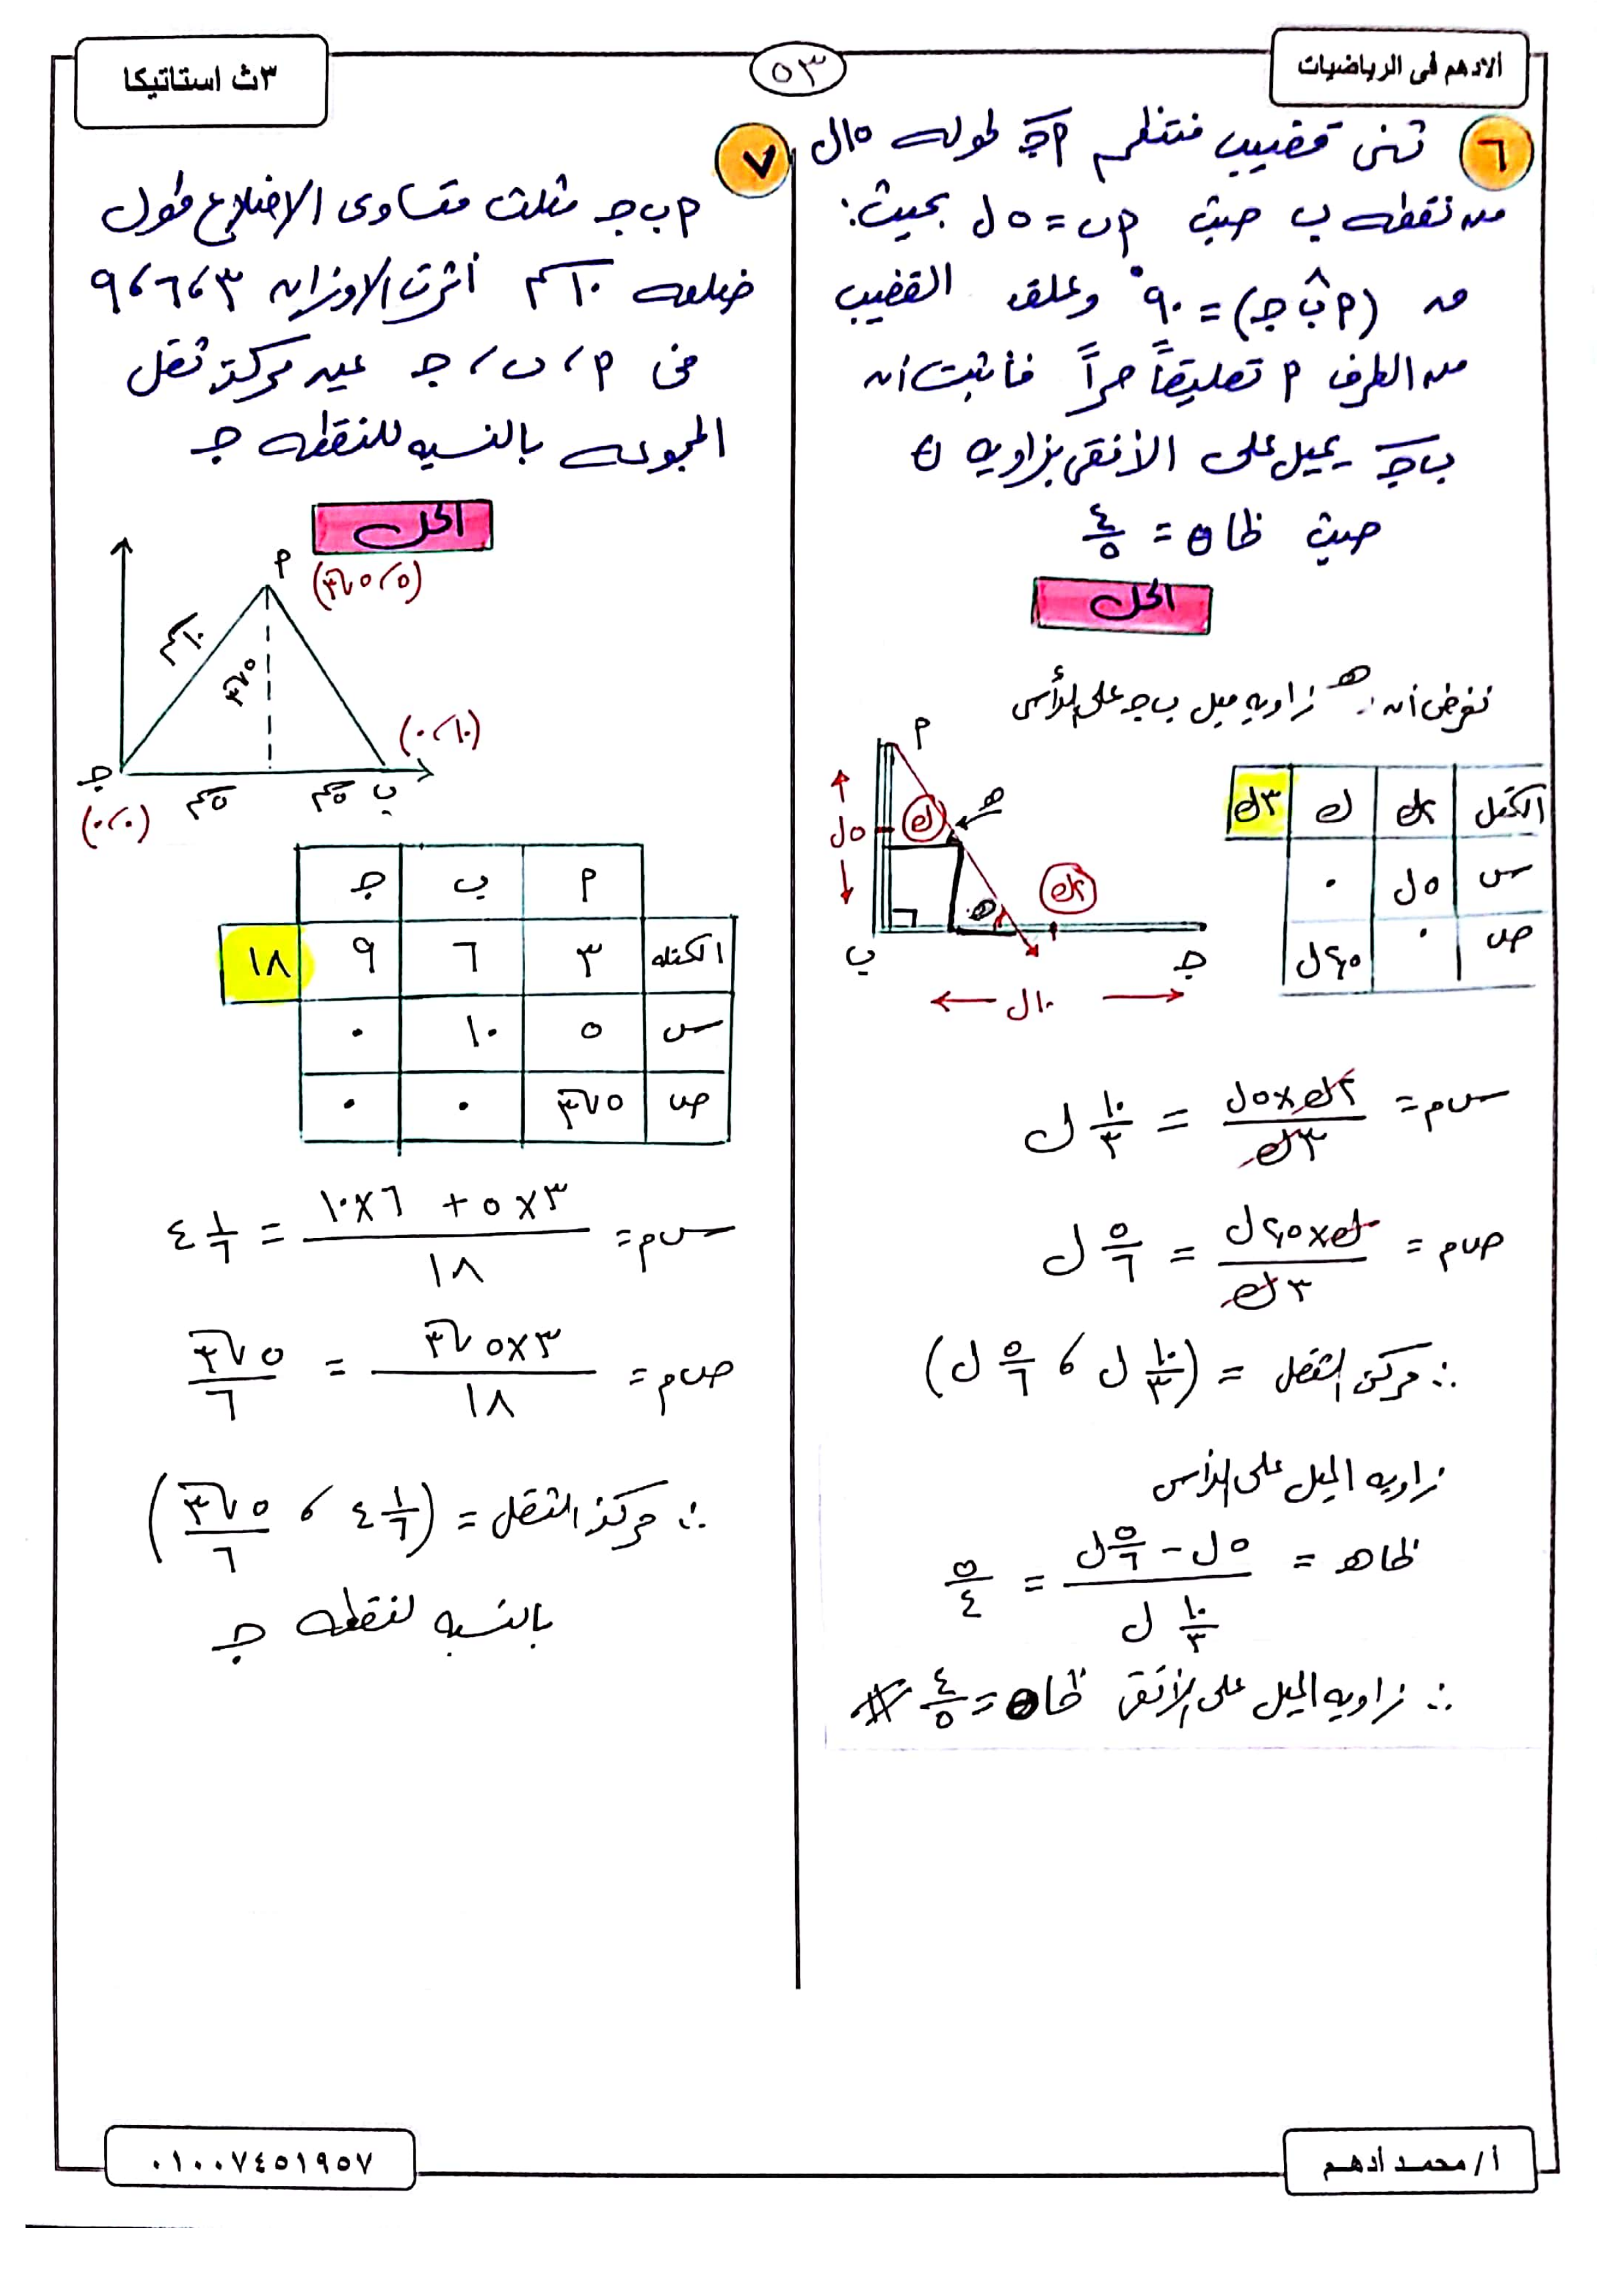 الادهم فى الرياضيات
٥٣
٣ث استاتيكا
٦ ثنى قضيب منتظم م جـ طوله ١٥ل
من نقطه ب حيث م ب = ٥ ل بحيث:
ق (م ب جـ) = ٩٠° وعلق القضيب
من الطرف م تعليقاً حراً فأثبت أن
ب جـ يميل على الأفقى بزاويه θ
حيث ظا θ = ٤/٥
الحل
نفرض أن: هـ زاويه ميل ب جـ على الرأسى
م
هـ
ك
٥ل
٢ك
هـ
ب
جـ
١٠ل
الكتل | ٢ك | ك | ٣ك
س | ٥ل | ٠
ص | ٠ | ٢,٥ل
س م = (٢ك × ٥ل)/(٣ك) = ١٠/٣ ل
ص م = (ك × ٢,٥ل)/(٣ك) = ٥/٦ ل
∴ مركز الثقل = (١٠/٣ ل ، ٥/٦ ل)
زاويه الميل على الرأسى
ظا هـ = (٥ل − ٥/٦ ل)/(١٠/٣ ل) = ٥/٤
∴ زاويه الميل على الأفقى ظا θ = ٤/٥ #
٧
م ب جـ مثلث متساوى الاضلاع طول
ضلعه ١٠سم أثرت الاوزان ٣، ٦، ٩
فى م، ب، جـ عين مركز ثقل
المجموعه بالنسبه للنقطه جـ
الحل
م
(٥، ٥√٣)
١٠سم
٥√٣
(١٠، ٠)
جـ
٥سم
٥سم
ب
(٠، ٠)
م | ب | جـ
الكتله | ٣ | ٦ | ٩ | ١٨
س | ٥ | ١٠ | ٠
ص | ٥√٣ | ٠ | ٠
س م = (٣×٥ + ٦×١٠)/١٨ = ٤ ١/٦
ص م = (٣×٥√٣)/١٨ = ٥√٣/٦
∴ مركز الثقل = (٤ ١/٦ ، ٥√٣/٦)
بالنسبه لنقطه جـ
أ/ محمد أدهم
٠١٠٠٧٤٥١٩٥٧